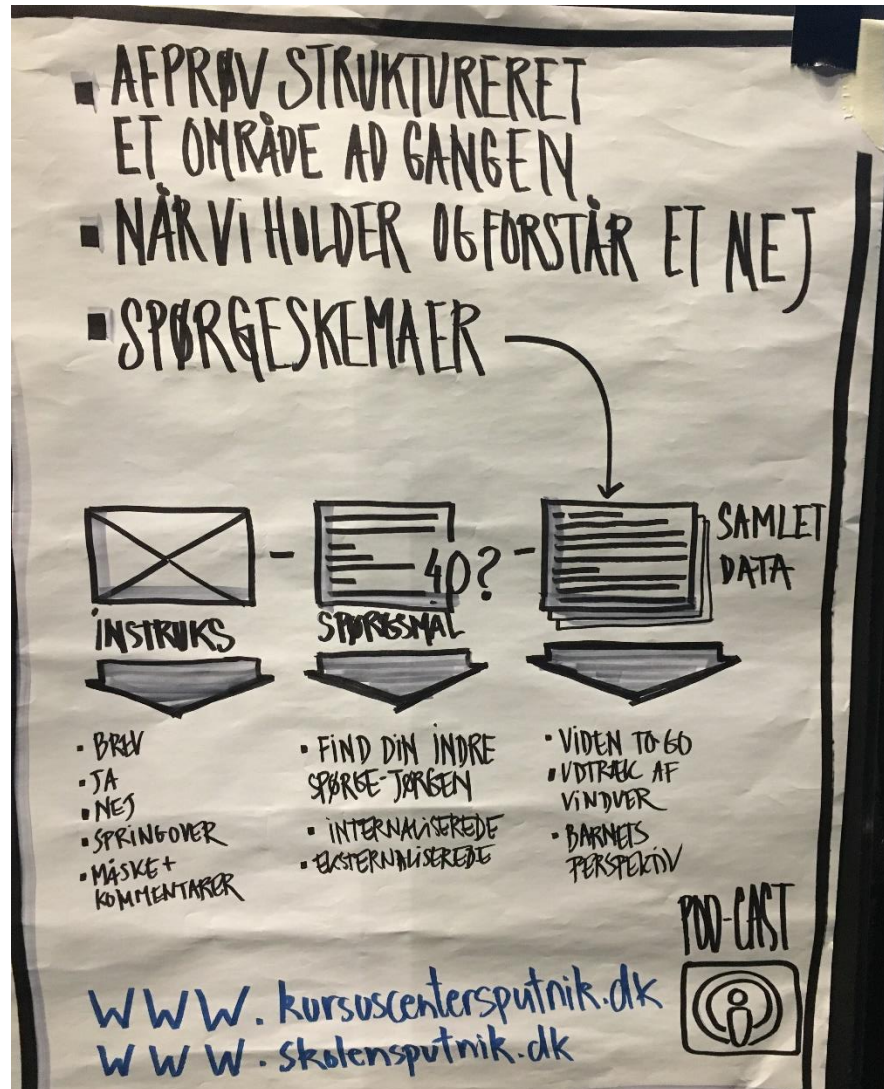 ▪ AFPRØV STRUKTURERET
ET OMRÅDE AD GANGEN
▪ NÅR VI HOLDER OG FORSTÅR ET NEJ
▪ SPØRGESKEMAER
40?
SAMLET
DATA
INSTRUKS
SPØRGSMÅL
• BREV
• JA
• NEJ
• SPRING OVER
• MÅSKE +
KOMMENTARER
• FIND DIN INDRE
SPØRGE-JØRGEN
• INTERNALISEREDE
• EKSTERNALISEREDE
• VIDEN TO GO
• UDTRÆK AF
VINDUER
• BARNETS
PERSPEKTIV
POD-CAST
WWW.kursuscentersputnik.dk
WWW.skolensputnik.dk